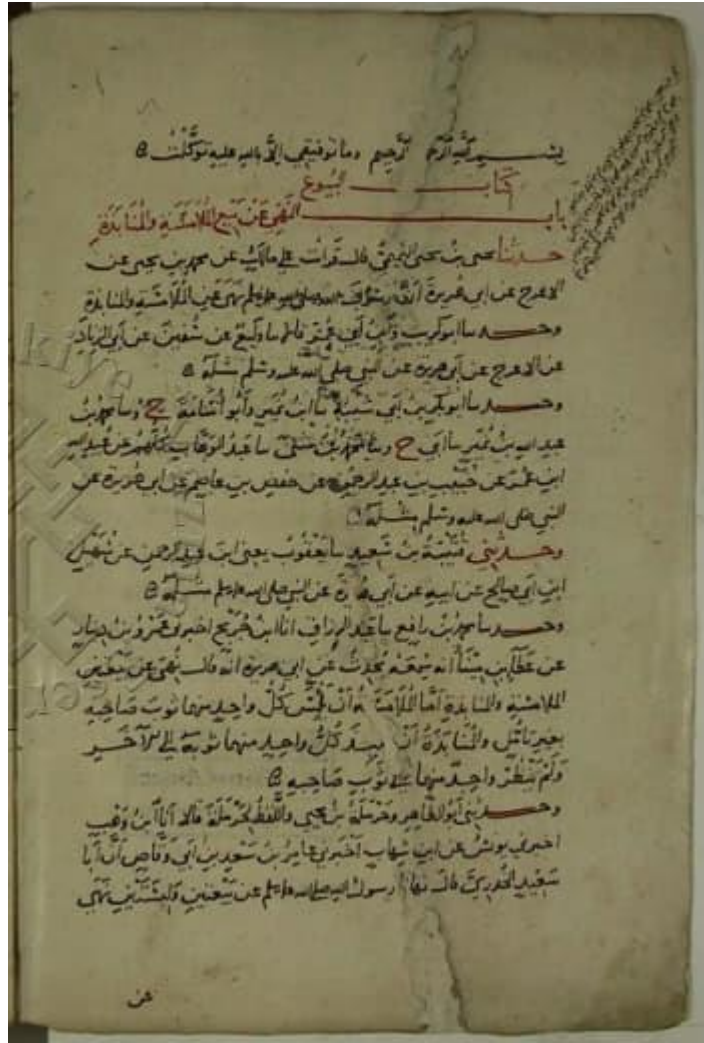 بسم الله الرحمن الرحيم وما توفيقي إلا بالله عليه توكلت
كتاب البيوع
باب النهي عن بيع الملامسة والمنابذة
حدثنا يحيى بن يحيى التميمي قال قرأت على مالك عن محمد بن يحيى عن
الاعرج عن ابي هريرة أن رسول الله صلى الله عليه وسلم نهى عن الملامسة والمنابذة
وحدسا ابو كريب وابن أبي عمر قالا سا وكيع عن سفين عن أبي الزناد
عن الاعرج عن أبي هريرة عن النبي صلى الله عليه وسلم مثله
وحدسا ابو بكر بن أبي شيبة سا ابن نمير وأبو أسامة ح وسا محمد بن
عبد الله بن نمير سا أبي ح وسا محمد بن مثنى سا عبد الوهاب كلهم عن عبيد الله
ابن عمر عن خبيب بن عبد الرحمن عن حفص بن عاصم عن ابي هريرة عن
النبي صلى الله عليه وسلم مثله
وحدثني قتيبة بن سعيد سا يعقوب يعني ابن عبد الرحمن عن سهيل
ابن أبي صالح عن ابيه عن أبي هريرة عن النبي صلى الله عليه وسلم مثله
وحدسا محمد بن رافع سا عبد الرزاق انا ابن جريج اخبرني عمرو بن دينار
عن عطاء بن ميناء أنه سمعه يحدث عن ابي هريرة انه قال نهي عن بيعتين
الملامسة والمنابذة أما الملامسة فأن يلمس كل واحد منهما ثوب صاحبه
بغير تأمل والمنابذة أن ينبذ كل واحد منهما ثوبه إلى الآخر
ولم ينظر واحد منهما إلى ثوب صاحبه
وحدثني أبو الطاهر وحرملة بن يحيى واللفظ لحرملة قالا أنا ابن وهب
اخبرني يونس عن ابن شهاب أخبرني عامر بن سعد بن أبي وقاص أن أبا
سعيد الخدري قال نهانا رسول الله صلى الله عليه وسلم عن بيعتين ولبستين نهى
عن